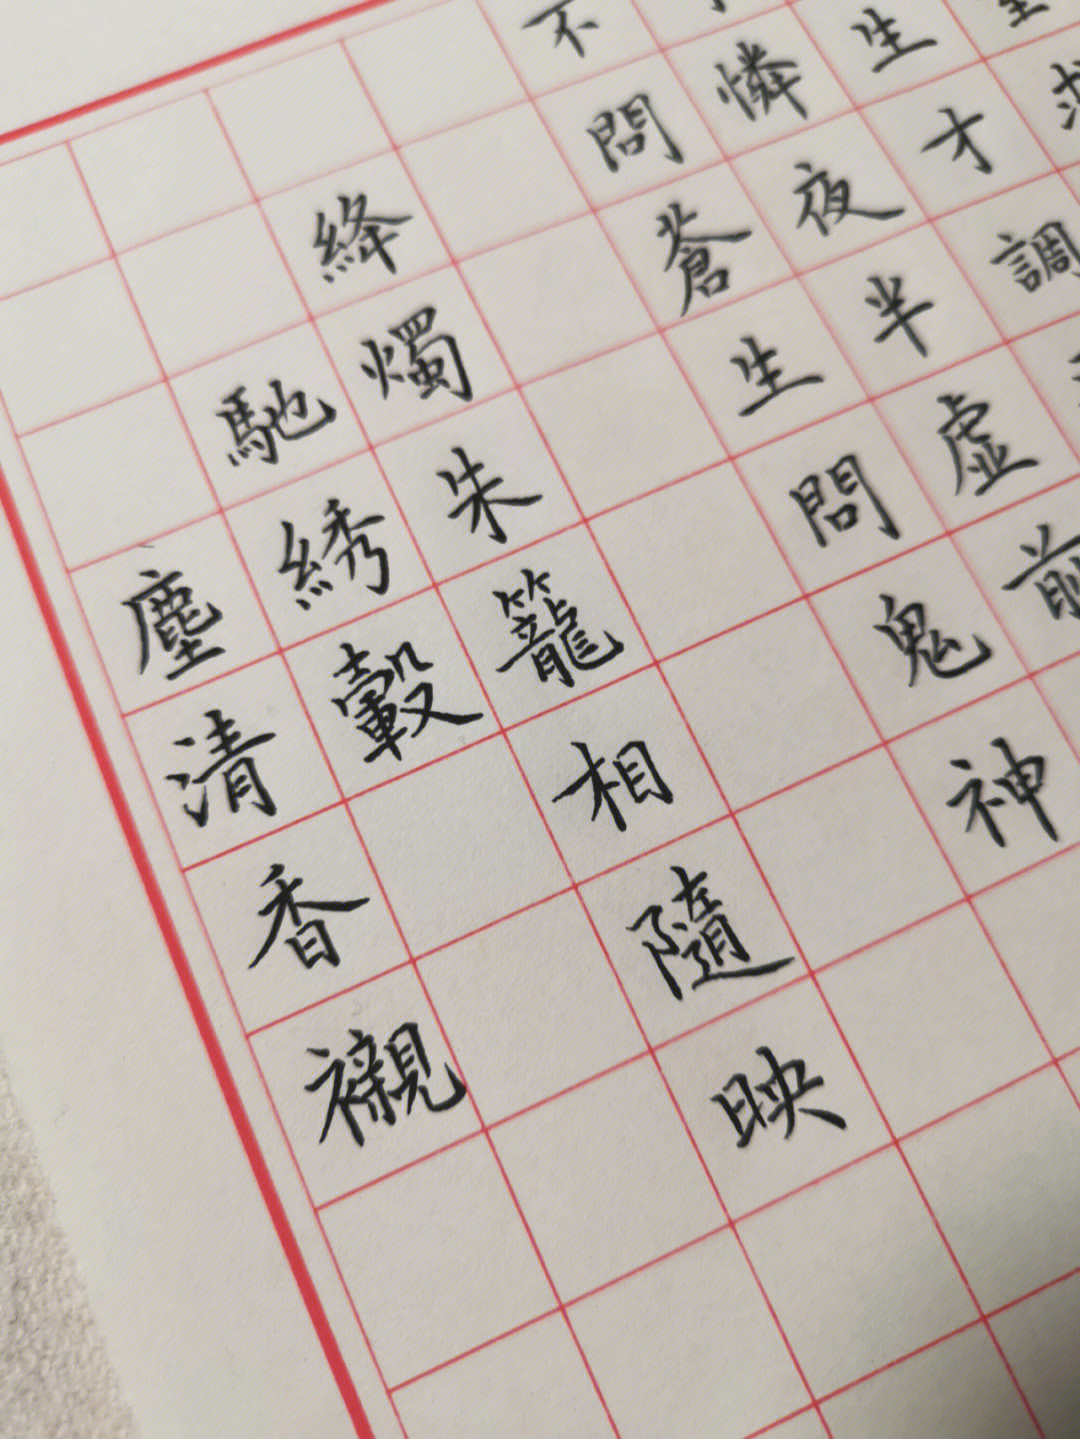 室求
生才調
憐夜半虛前
不問蒼生問鬼神
絳燭朱籠相隨映
馳綉轂
塵清香襯